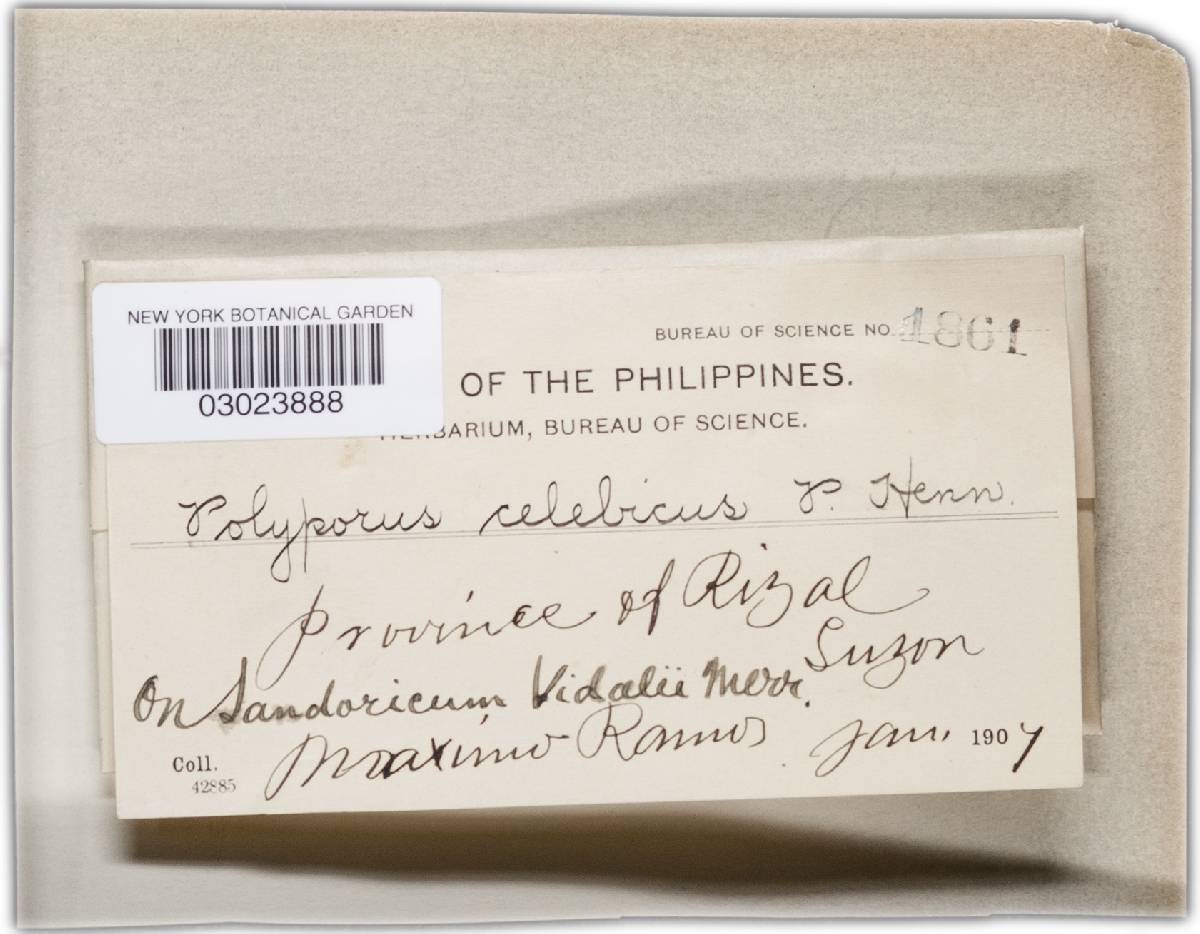 NEW YORK BOTANICAL GARDEN
03023888
BUREAU OF SCIENCE NO. 1861
OF THE PHILIPPINES.
HERBARIUM, BUREAU OF SCIENCE.
Polyporus celebicus P. Henn.
Province of Rizal
Luzon
On Sandoricum Vidalii Merr.
Coll. Maximo Ramos Jan. 1907
42885